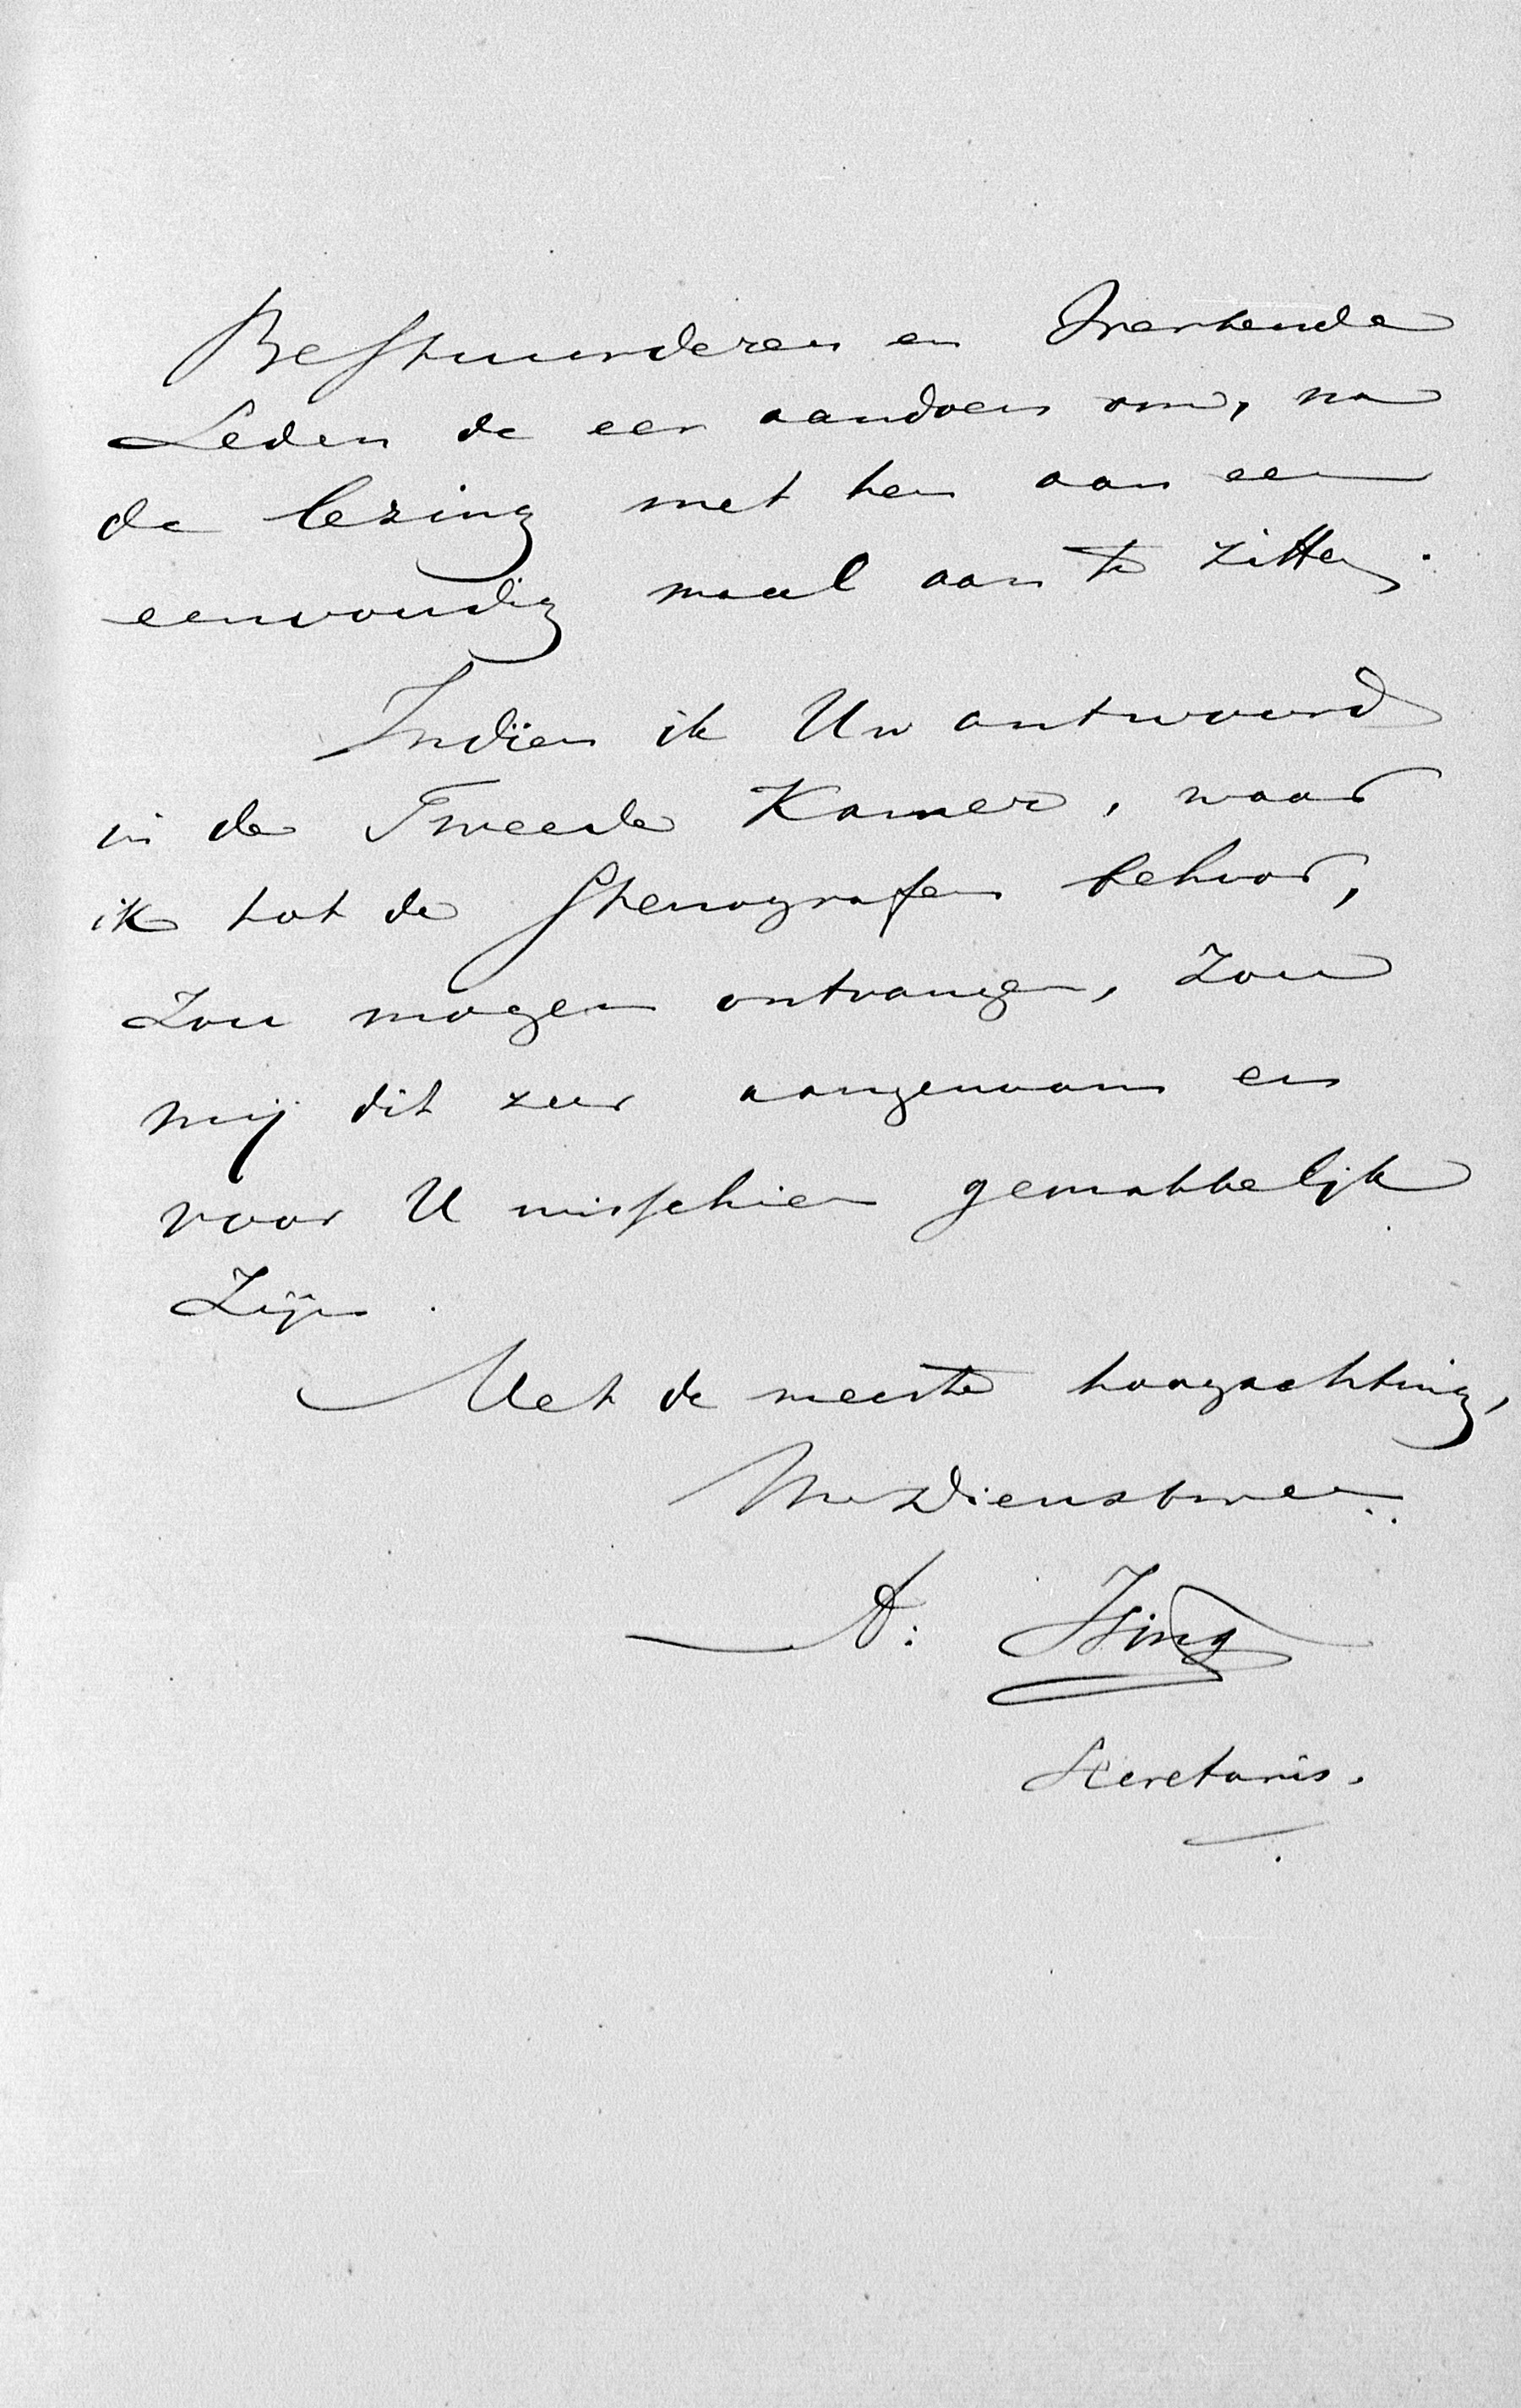 Bestuurderen en Werkende
Leden de eer aandoen om, na
de lezing met hen aan een
eenvoudig maal aan te zitten.
Indien ik Uw antwoord
in de Tweede Kamer, waar
ik tot de Stenografen behoor,
zou mogen ontvangen, zou
mij dit zeer aangenaam en
voor U misschien gemakkelijk
zijn.
Met de meeste hoogachting,
Uw Dienstw.
A. Ising
Secretaris.